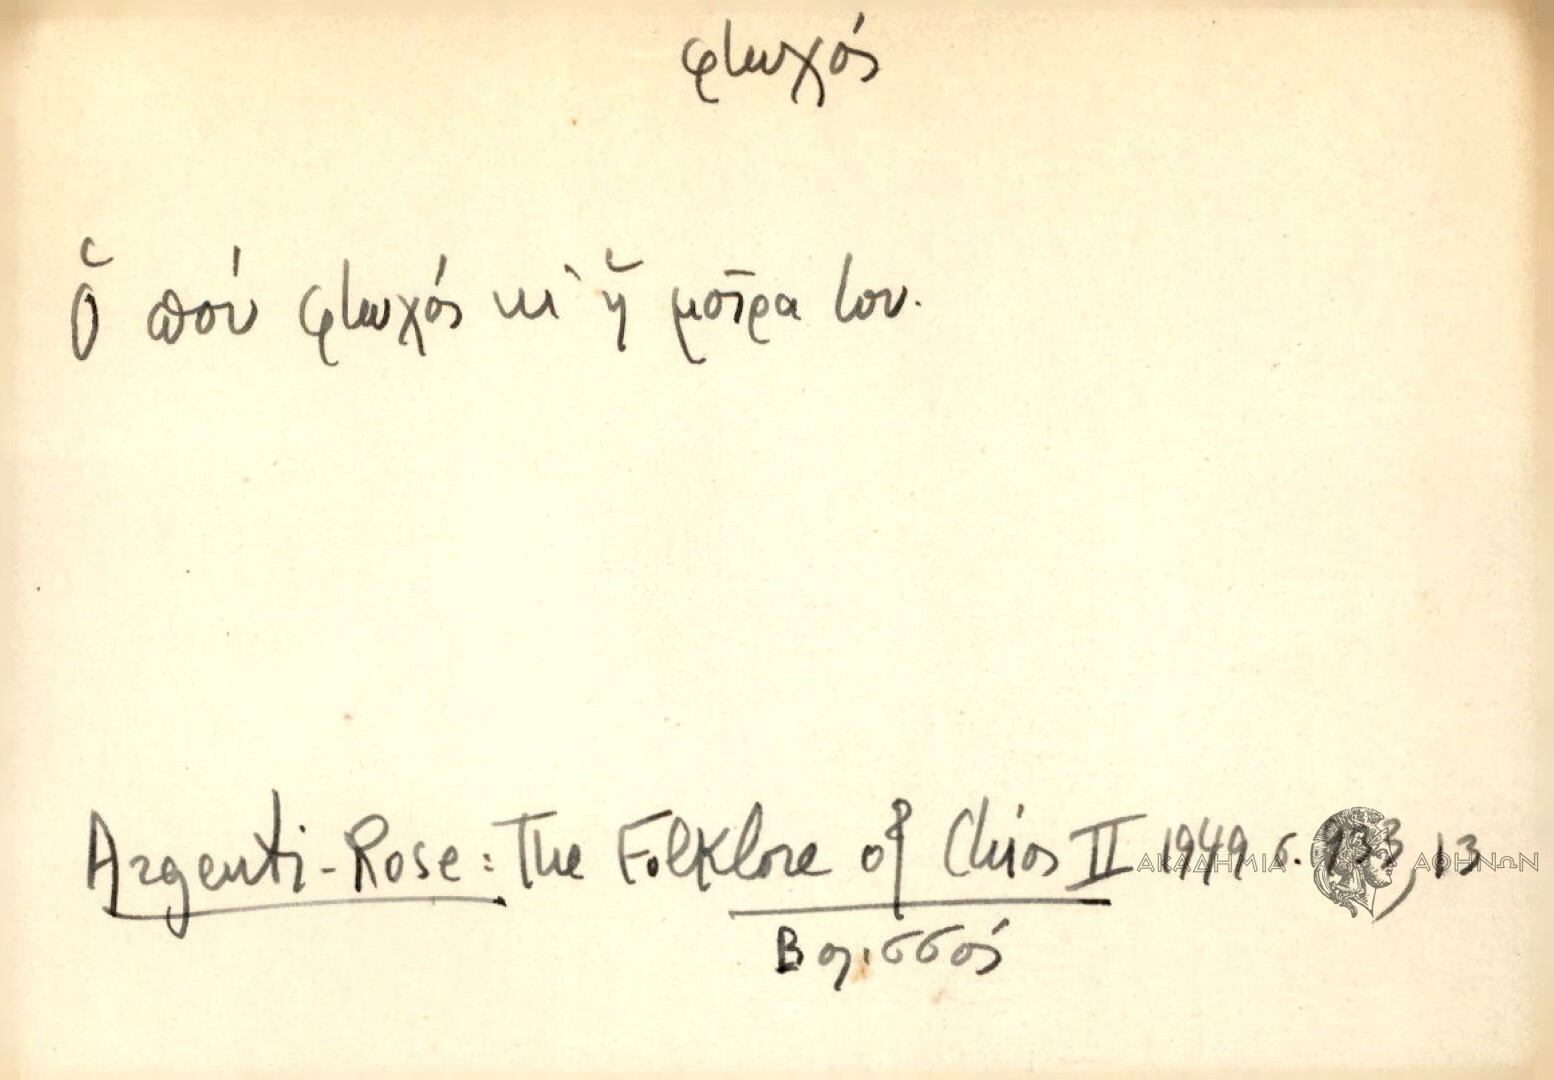 φτωχός
Ὁ πού φτωχός κι' ἡ μοῖρα του.
Argenti-Rose: The Folklore of Chios II 1949 σ. 133, 13
ΑΚΑΔΗΜΙΑ ΑΘΗΝΩΝ
Βολισσός